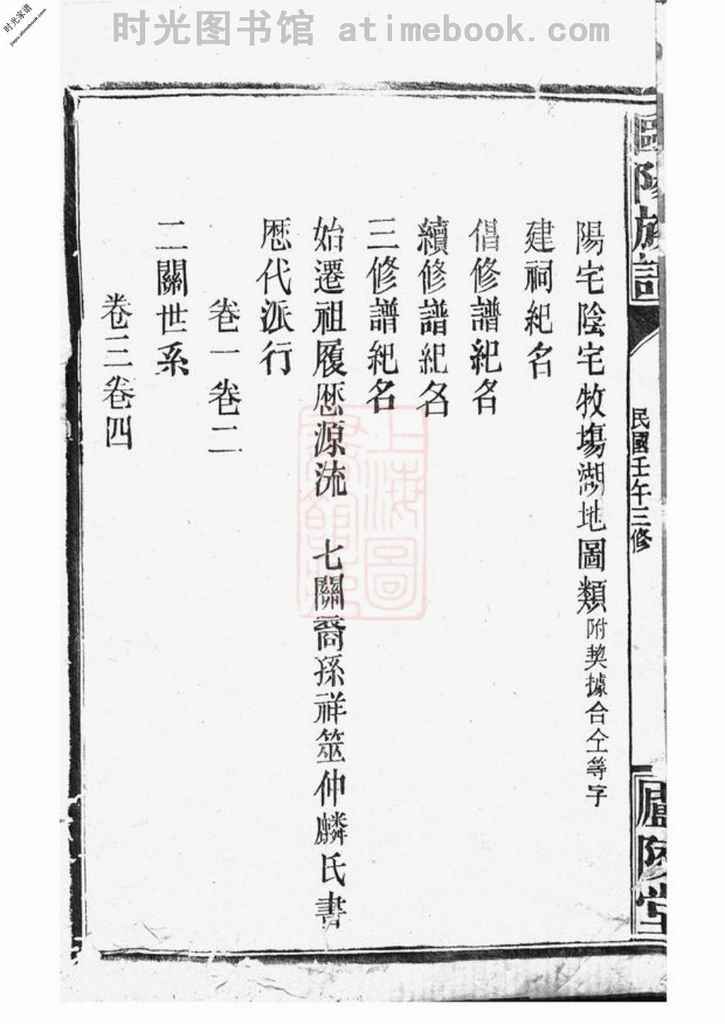 时光图书馆 atimebook.com
时光家谱
陽宅陰宅牧塲湖地圖類 附契據合仝等字
建祠紀名
倡修譜紀名
續修譜紀名
三修譜紀名
始遷祖履厯源流 七關裔孫祥筮仲麟氏書
厯代派行
卷一卷二
二關世系
卷三卷四
民國壬午三修
廬陵堂
上海圖